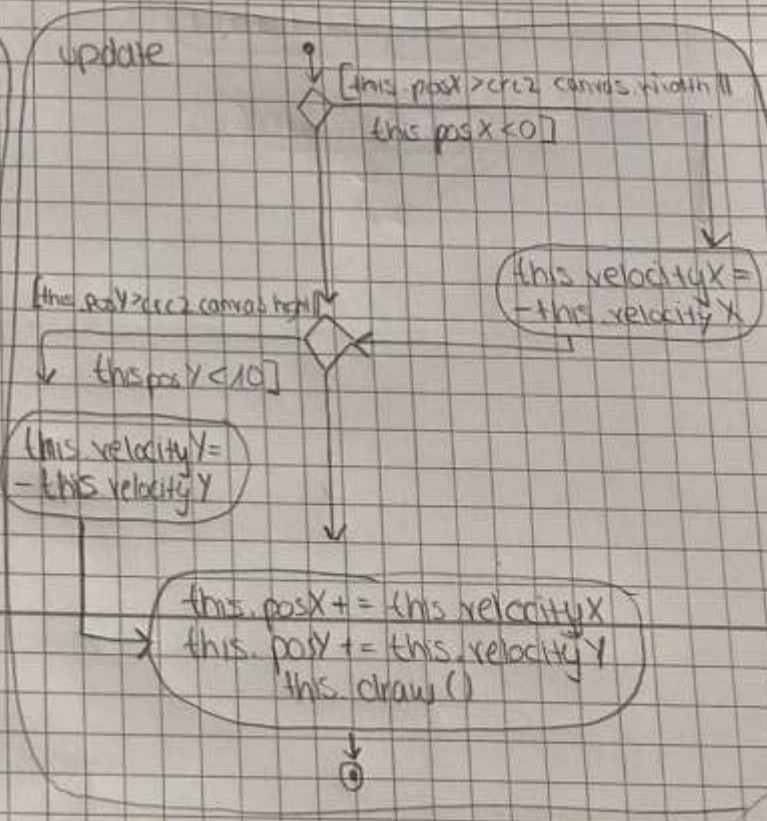 update
[this.posX>crc2.canvas.width||
this.posX<0]
this.velocityX=
-this.velocityX
[this.posY>crc2.canvas.heght||
this.posY<10]
this.velocityY=
-this.velocityY
this.posX+=this.velocityX
this.posY+=this.velocityY
this.draw()